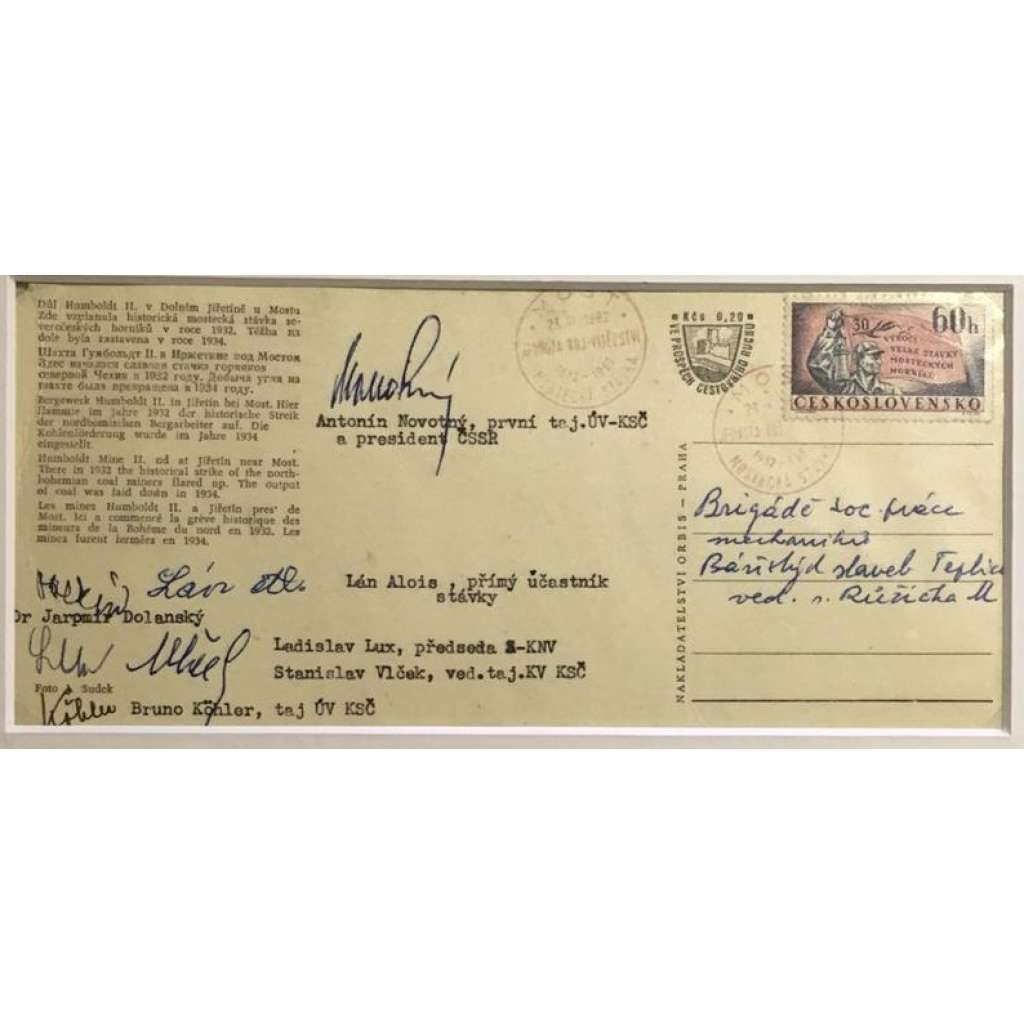 Důl Humboldt II. v Dolním Jiřetíně u Mostu
Zde vzplanula historická mostecká stávka se-
veročeských horníků v roce 1932. Těžba na
dole byla zastavena v roce 1934.
Шахта Гумбольдт II. в Иржетине под Мостом
Здес началася славная стачка горняков
северной Чехии в 1932 году. Добыча угля на
шахте была прекращена в 1934 году.
Bergewerk Humboldt II. in Jiřetín bei Most. Hier
flammte im Jahre 1932 der historische Streik
der nordböhmischen Bergarbeiter auf. Die
Kohlenförderung wurde im Jahre 1934
eingestellt.
Humboldt Mine II. od at Jiřetín near Most.
There in 1932 the historical strike of the north-
bohemian coal miners flared up. The output
of coal was laid down in 1934.
Les mines Humboldt II. a Jiřetín pres' de
Most. Ici a commencé la grève historique des
mineurs de la Bohême du nord en 1932. Les
mines furent fermées en 1934.
Antonín Novotný, první taj.ÚV-KSČ
a president ČSSR
Lán Alois, přímý účastník
stávky
Dr Jarpmír Dolanský
Ladislav Lux, předseda S-KNV
Stanislav Vlček, ved.taj.KV KSČ
Foto Sudek
Köhler Bruno Köhler, taj ÚV KSČ
MOST
Kčs 0,20
VE PROSPĚCH CESTOVNÍHO RUCHU
30
60h
VÝROČÍ
VELKÉ STÁVKY
MOSTECKÝCH
HORNÍKŮ
ČESKOSLOVENSKO
NAKLADATELSTVÍ ORBIS – PRAHA
Brigádě soc. práce
mechaniků
staveb Teplice
ved. s. Růžička M